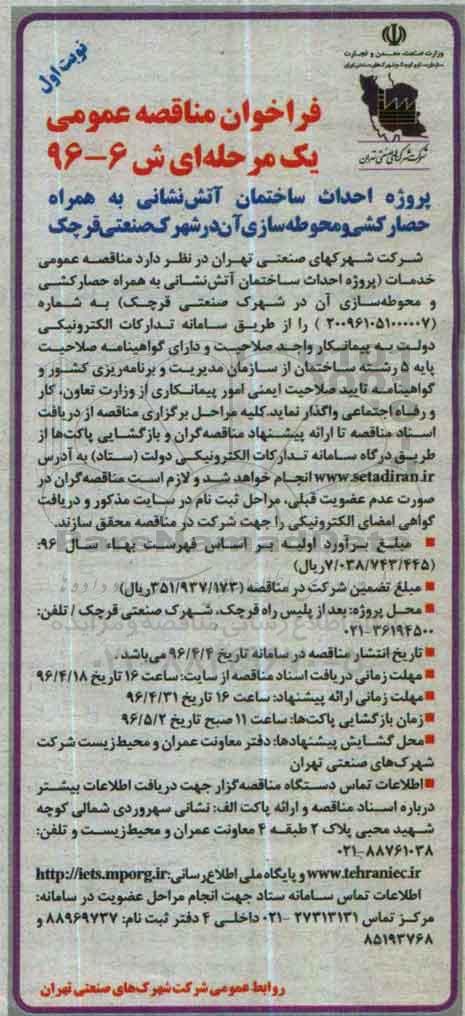 نوبت اول
وزارت صنعت، معدن و تجارت
شرکت شهرکهای صنعتی تهران
فراخوان مناقصه عمومی
یک مرحله‌ای ش ۶-۹۶
پروژه احداث ساختمان آتش‌نشانی به همراه
حصارکشی و محوطه‌سازی آن در شهرک صنعتی قرچک
شرکت شهرکهای صنعتی تهران در نظر دارد مناقصه عمومی
خدمات (پروژه احداث ساختمان آتش‌نشانی به همراه حصارکشی
و محوطه‌سازی آن در شهرک صنعتی قرچک) به شماره
(۲۰۰۹۶۱۰۵۱۰۰۰۰۰۷) را از طریق سامانه تدارکات الکترونیکی
دولت به پیمانکار واجد صلاحیت و دارای گواهینامه صلاحیت
پایه ۵ رشته ساختمان از سازمان مدیریت و برنامه‌ریزی کشور و
گواهینامه تایید صلاحیت ایمنی امور پیمانکاری از وزارت تعاون، کار
و رفاه اجتماعی واگذار نماید.کلیه مراحل برگزاری مناقصه از دریافت
اسناد مناقصه تا ارائه پیشنهاد مناقصه‌گران و بازگشایی پاکت‌ها از
طریق درگاه سامانه تدارکات الکترونیکی دولت (ستاد) به آدرس
www.setadiran.ir انجام خواهد شد و لازم است مناقصه‌گران در
صورت عدم عضویت قبلی، مراحل ثبت نام در سایت مذکور و دریافت
گواهی امضای الکترونیکی را جهت شرکت در مناقصه محقق سازند.
■ مبلغ برآورد اولیه بر اساس فهرست بهاء سال ۹۶:
(۷/۰۳۸/۷۴۳/۴۴۵ریال)
■ مبلغ تضمین شرکت در مناقصه (۳۵۱/۹۳۷/۱۷۳ریال)
■ محل پروژه: بعد از پلیس راه قرچک، شهرک صنعتی قرچک / تلفن:
۰۲۱-۳۶۱۹۴۵۰۰
■ تاریخ انتشار مناقصه در سامانه تاریخ ۹۶/۴/۴ می‌باشد.
■ مهلت زمانی دریافت اسناد مناقصه از سایت: ساعت ۱۶ تاریخ ۹۶/۴/۱۸
■ مهلت زمانی ارائه پیشنهاد: ساعت ۱۶ تاریخ ۹۶/۴/۳۱
■ زمان بازگشایی پاکت‌ها: ساعت ۱۱ صبح تاریخ ۹۶/۵/۲
■ محل گشایش پیشنهادها: دفتر معاونت عمران و محیط زیست شرکت
شهرک‌های صنعتی تهران
■ اطلاعات تماس دستگاه مناقصه‌گزار جهت دریافت اطلاعات بیشتر
درباره اسناد مناقصه و ارائه پاکت الف: نشانی سهروردی شمالی کوچه
شهید محبی پلاک ۲ طبقه ۴ معاونت عمران و محیط‌زیست و تلفن:
۰۲۱-۸۸۷۶۱۰۳۸
www.tehraniec.ir و پایگاه ملی اطلاع‌رسانی: http://iets.mporg.ir
اطلاعات تماس سامانه ستاد جهت انجام مراحل عضویت در سامانه:
مرکز تماس ۲۷۳۱۳۱۳۱ -۰۲۱ داخلی ۴ دفتر ثبت نام: ۸۸۹۶۹۷۳۷ و
۸۵۱۹۳۷۶۸
روابط عمومی شرکت شهرک‌های صنعتی تهران